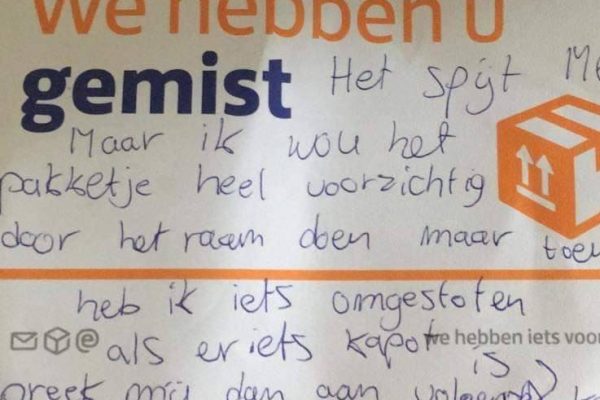 We hebben u
gemist Het spijt Me
Maar ik wou het
pakketje heel voorzichtig
door het raam doen maar toen
heb ik iets omgestoten
als er iets kapot we hebben iets voor
is
mij dan aan